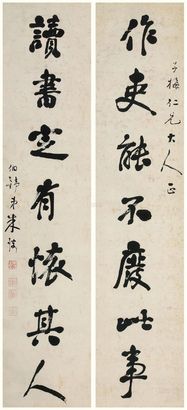 子仁兄大人正
作吏能不廢此事
讀書定有懷其人
伯韓弟朱琦